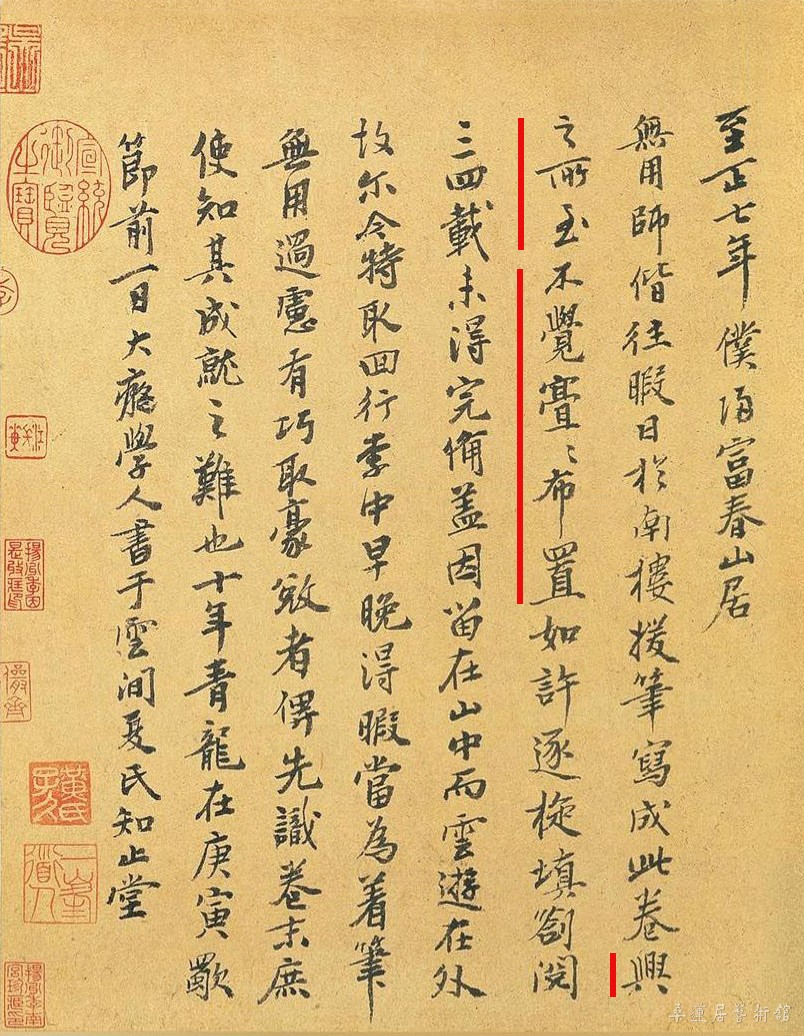 至正七年僕歸富春山居
無用師偕往暇日於南樓援筆寫成此卷興
之所至不覺亹〻布置如許逐旋填劄閱
三四載未得完備盖因留在山中而雲遊在外
故尔今特取回行李中早晚得暇當為着筆
無用過慮有巧取豪敚者俾先識卷末庶
使知其成就之難也十年青龍在庚寅歜
節前一日大癡學人書于雲間夏氏知止堂
宣統御覽之寶
黃氏子久
一峯道人
居藝術館